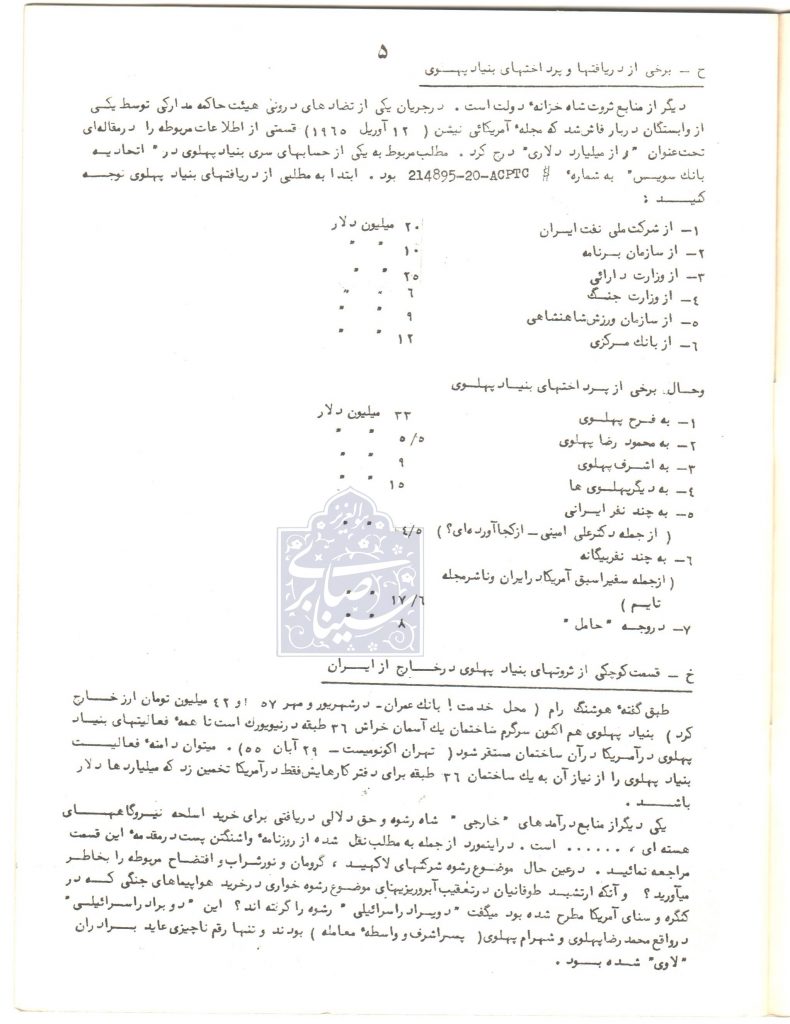 ۵
ح - برخی از دریافتها و پرداختهای بنیاد پهلوی
دیگر از منابع ثروت شاه خزانهٔ دولت است . در جریان یکی از تضادهای درونی هیئت حاکمه مدارکی توسط یکی
از وابستگان دربار فاش شد که مجلهٔ آمریکائی نیشن ( ۱۲ آوریل ۱۹۶۵ ) قسمتی از اطلاعات مربوطه را در مقاله‌ای
تحت عنوان " راز میلیارد دلاری " درج کرد . مطلب مربوط به یکی از حسابهای سری بنیاد پهلوی در " اتحادیه
بانک سویس " به شمارهٔ # 214895-20-ACPTC بود . ابتدا به مطلبی از دریافتهای بنیاد پهلوی توجه
کنید :
۱- از شرکت ملی نفت ایران ۲۰ میلیون دلار
۲- از سازمان برنامه ۱۰ " "
۳- از وزارت دارائی ۲۵ " "
۴- از وزارت جنگ ۶ " "
۵- از سازمان ورزش شاهنشاهی ۹ " "
۶- از بانک مرکزی ۱۲ " "
وحال برخی از پرداختهای بنیاد پهلوی
۱- به فرح پهلوی ۳۳ میلیون دلار
۲- به محمود رضا پهلوی ۵/۵ " "
۳- به اشرف پهلوی ۹ " "
۴- به دیگر پهلوی ها ۱۵ " "
۵- به چند نفر ایرانی
( از جمله دکتر علی امینی - از کجا آورده‌ای؟ ) ۴/۵ " "
۶- به چند نفر بیگانه
( از جمله سفیر اسبق آمریکا در ایران و ناشر مجله
تایم ) ۱۷/۶ " "
۷- در وجه " حامل " ۸ " "
هوالعزیز
خ - قسمت کوچکی از ثروتهای بنیاد پهلوی در خارج از ایران
طبق گفتهٔ هوشنگ رام ( محل خدمت ! بانک عمران - در شهریور و مهر ۵۷ ۴۲ میلیون تومان ارز خارج
کرد ) بنیاد پهلوی هم اکنون سرگرم ساختمان یک آسمان خراش ۳۶ طبقه در نیویورک است تا همهٔ فعالیتهای بنیاد
پهلوی در آمریکا در آن ساختمان مستقر شود ( تهران اکونومیست - ۲۹ آبان ۵۵ ) . میتوان دامنهٔ فعالیت
بنیاد پهلوی را از نیاز آن به یک ساختمان ۳۶ طبقه برای دفتر کارهایش فقط در آمریکا تخمین زد که میلیارد ها دلار
باشد .
یکی دیگر از منابع درآمدهای " خارجی " شاه رشوه و حق دلالی دریافتی برای خرید اسلحه نیروگاههای
هسته ای ، ...... است . در اینمورد از جمله به مطلب نقل شده از روزنامهٔ واشنگتن پست در مقدمهٔ این قسمت
مراجعه نمائید . در عین حال موضوع رشوه شرکتهای لاکهید ، گرومان و نورثراپ و افتضاح مربوطه را بخاطر
میآورید ؟ و آنکه ارتشبد طوفانیان در تعقیب آبروریزیهای موضوع رشوه خواری در خرید هواپیماهای جنگی که در
کنگره و سنای آمریکا مطرح شده بود میگفت " دو برادر اسرائیلی " رشوه را گرفته اند ؟ این " دو برادر اسرائیلی "
در واقع محمد رضا پهلوی و شهرام پهلوی ( پسر اشرف و واسطهٔ معامله ) بودند و تنها رقم ناچیزی عاید برادران
" لاوی " شده بود .